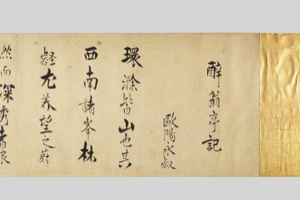 醉翁亭記
歐陽永叔
環滁皆山也其
西南諸峯林
壑尤美望之蔚
然而深秀者良